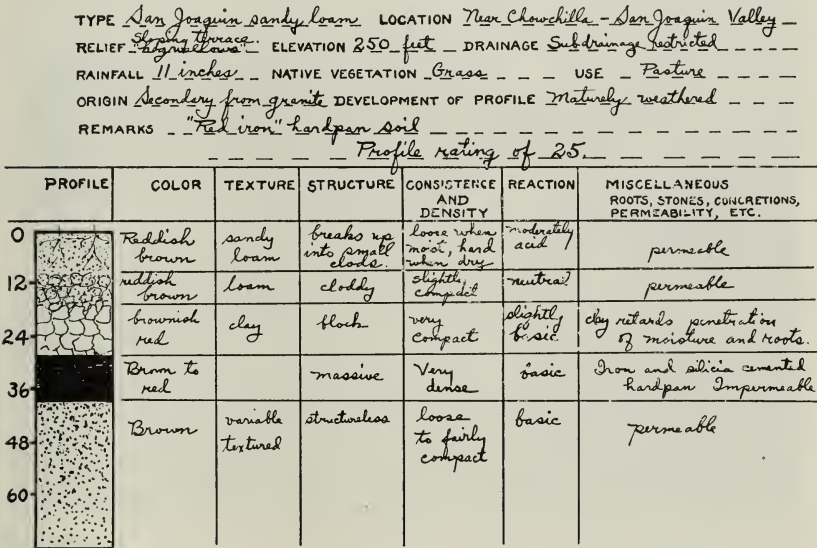 TYPE San Joaquin sandy loam LOCATION Near Chowchilla - San Joaquin Valley
Sloping terrace.
RELIEF "hogwallows" ELEVATION 250 feet DRAINAGE Subdrainage restricted
RAINFALL 11 inches NATIVE VEGETATION Grass USE Pasture
ORIGIN Secondary from granite DEVELOPMENT OF PROFILE Maturely weathered
REMARKS "Red iron" hardpan soil
Profile rating of 25.
PROFILE COLOR TEXTURE STRUCTURE CONSISTENCE AND DENSITY REACTION MISCELLANEOUS ROOTS, STONES, CONCRETIONS, PERMEABILITY, ETC.
0 Reddish brown sandy loam breaks up into small clods. loose when moist, hard when dry moderately acid permeable
12 reddish brown loam cloddy slightly compact neutral permeable
24 brownish red clay block very compact slightly basic clay retards penetration of moisture and roots.
36 Brown to red massive Very dense basic Iron and silicia cemented hardpan Impermeable
48 Brown variable textured structureless loose to fairly compact basic permeable
60